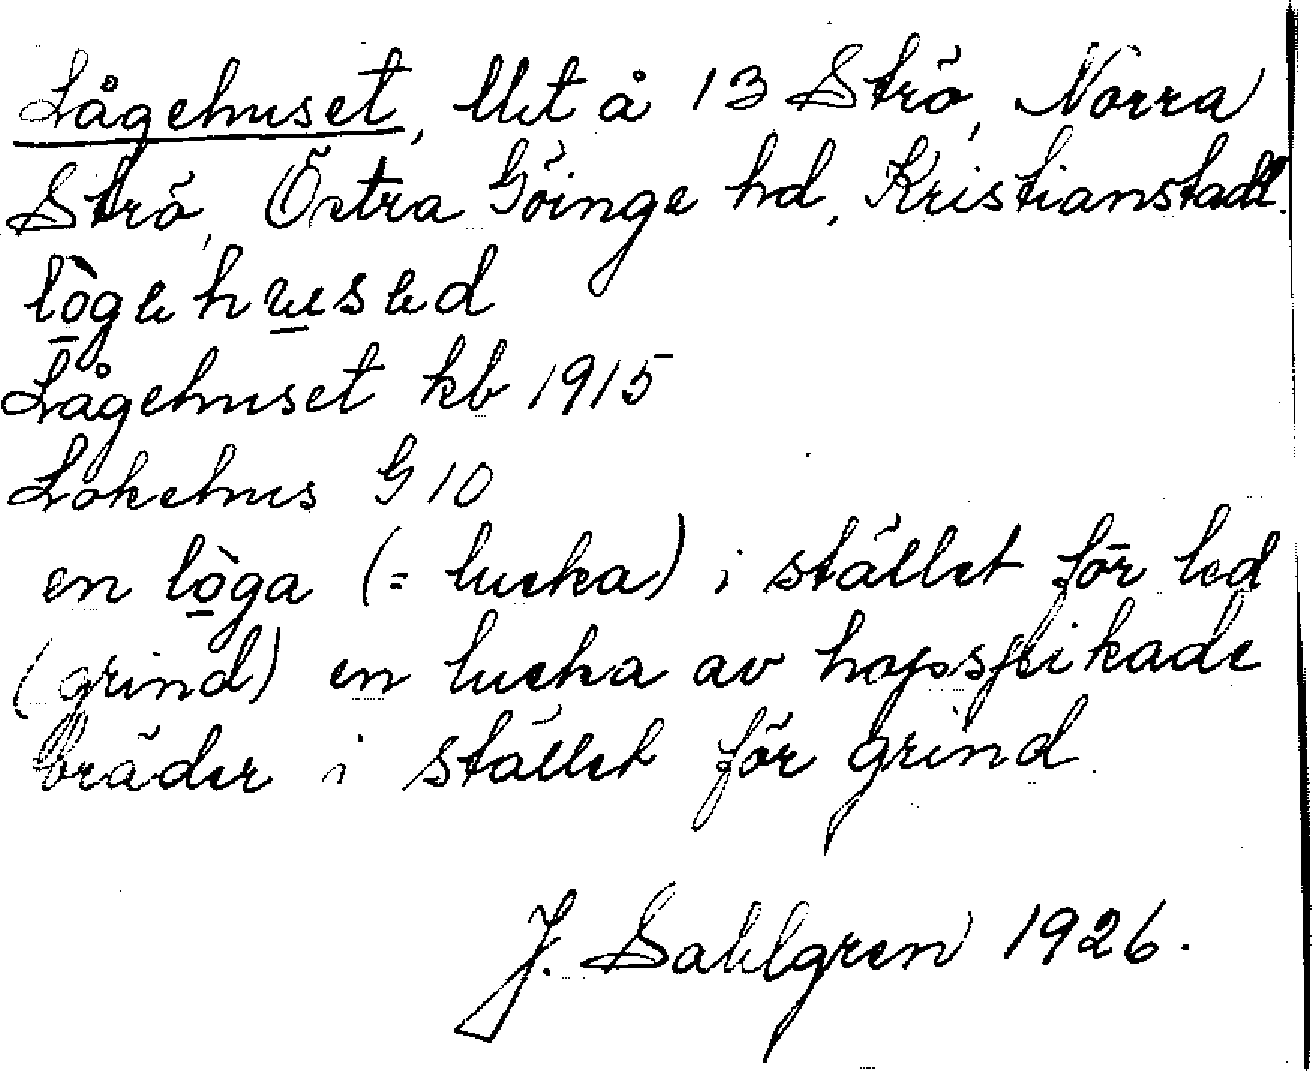 Lågehuset, llet å 13 Strö, Norra
Strö, Östra Göinge hd, Kristianstads l.
lo̠̊̀gehu̠sed
Lågehuset kb 1915
Lokehus G 10
en lò̠ga (= lucka) i stället för led
(grind) en lucka av hopspikade
bräder i stället för grind.
J. Sahlgren 1926.